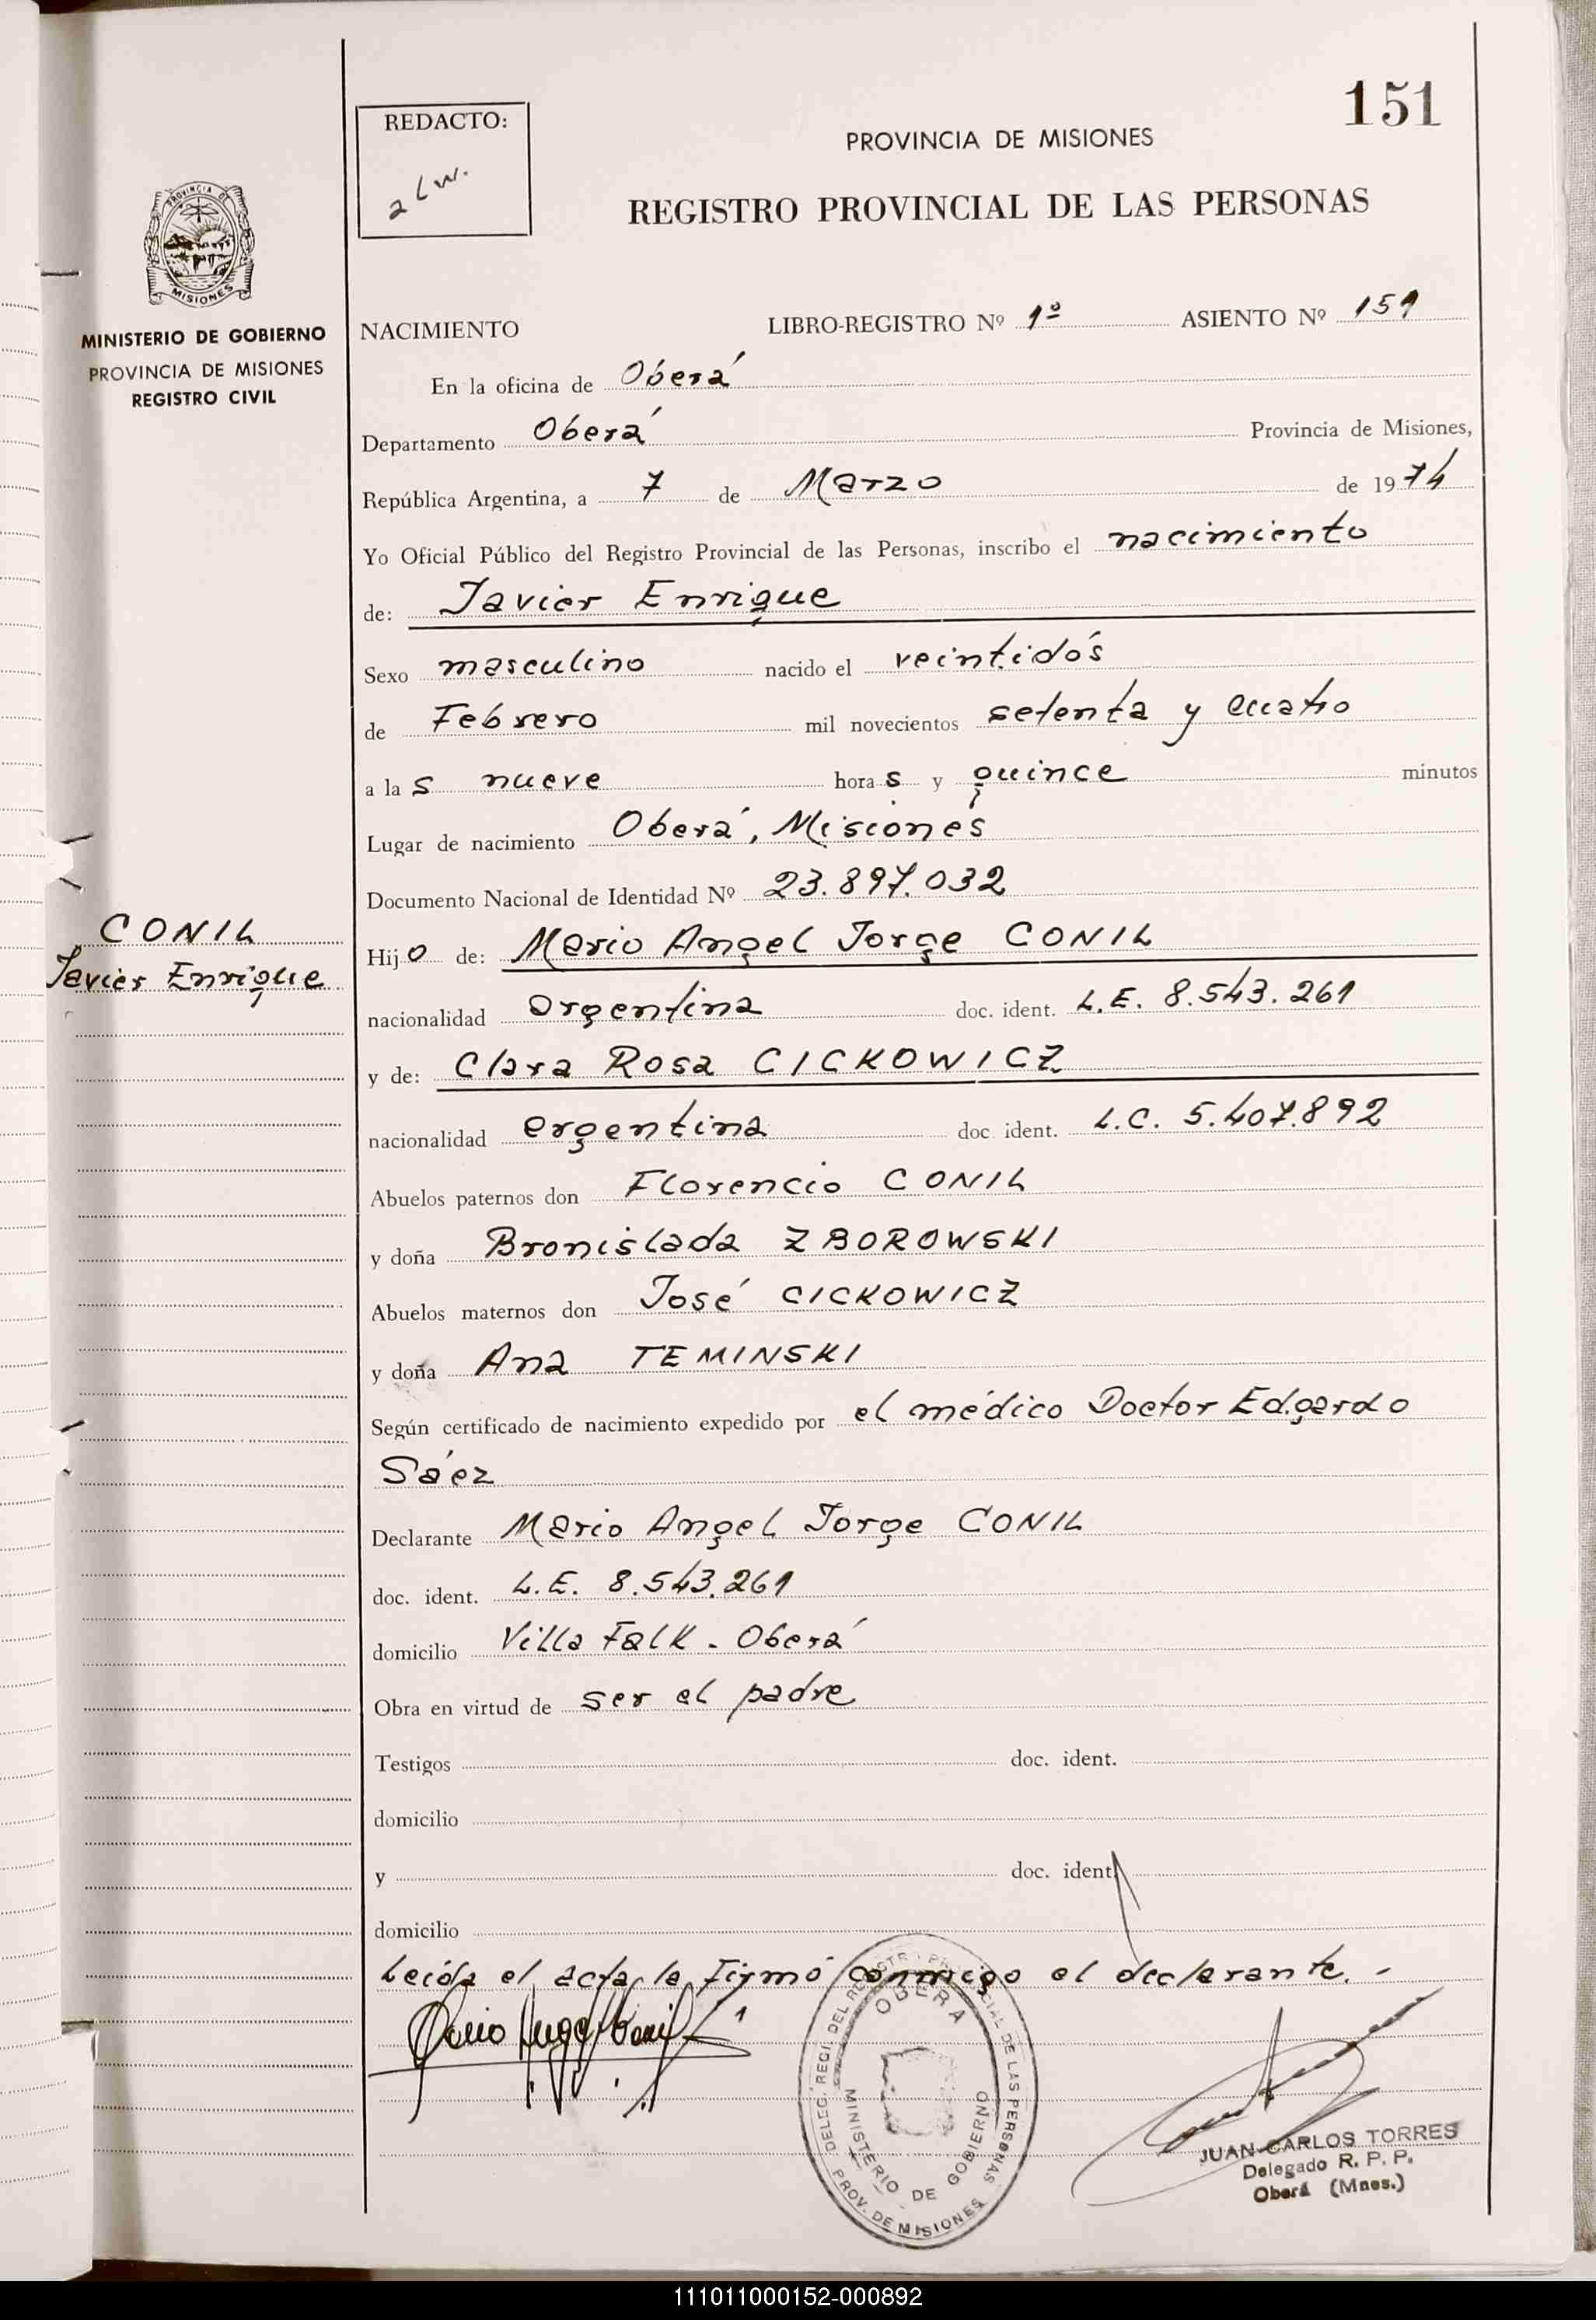 151
REDACTO:
PROVINCIA DE MISIONES
REGISTRO PROVINCIAL DE LAS PERSONAS
PROVINCIA DE
MISIONES
MINISTERIO DE GOBIERNO
PROVINCIA DE MISIONES
REGISTRO CIVIL
NACIMIENTO LIBRO-REGISTRO Nº 1º ASIENTO Nº 151
En la oficina de Oberá
Departamento Oberá Provincia de Misiones,
República Argentina, a 7 de Marzo de 1974
Yo Oficial Público del Registro Provincial de las Personas, inscribo el nacimiento
de: Javier Enrique
Sexo masculino nacido el veintidós
de Febrero mil novecientos setenta y cuatro
a las nueve horas y quince minutos
Lugar de nacimiento Oberá, Misiones
Documento Nacional de Identidad Nº 23.897.032
CONIL
Javier Enrique
Hijo de: Mario Angel Jorge CONIL
nacionalidad argentina doc. ident. L.E. 8.543.261
y de: Clara Rosa CICKOWICZ
nacionalidad argentina doc ident. L.C. 5.407.892
Abuelos paternos don Florencio CONIL
y doña Bronislada ZBOROWSKI
Abuelos maternos don José CICKOWICZ
y doña Ana TEMINSKI
Según certificado de nacimiento expedido por el médico Doctor Edgardo
Sáez
Declarante Mario Angel Jorge CONIL
doc. ident. L.E. 8.543.261
domicilio Villa Falk - Oberá
Obra en virtud de ser el padre
Testigos doc. ident.
domicilio
y doc. ident.
domicilio
Leída el acta, la firmó conmigo el declarante. -
DELEG. REGI. DEL REGISTR. PROVINCIAL DE LAS PERSONAS
OBERA
MINISTERIO DE GOBIERNO
PROV. DE MISIONES
JUAN CARLOS TORRES
Delegado R. P. P.
Oberá (Mnes.)
111011000152-000892